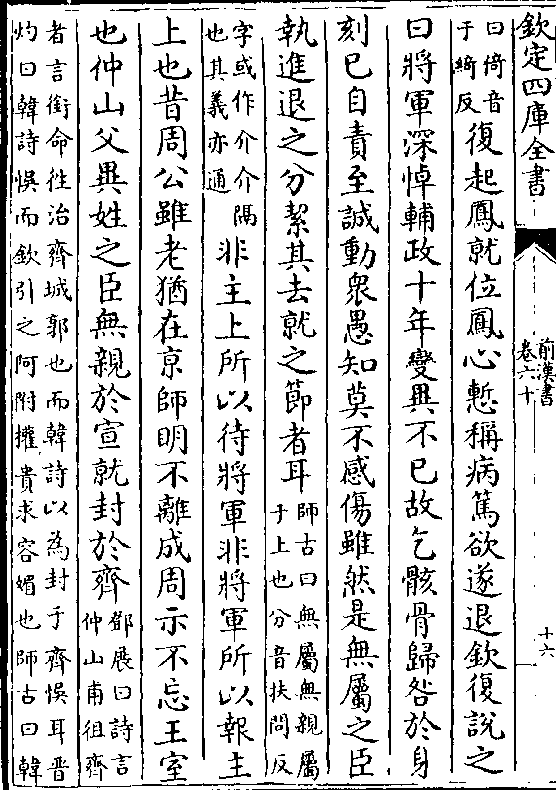 欽定四庫全書
前漢書
卷六十
十六
曰倚音
于綺反
復起鳳就位鳳心慙稱病篤欲遂退欽復說之
曰將軍深悼輔政十年變異不已故乞骸骨歸咎於身
刻已自責至誠動衆愚知莫不感傷雖然是無屬之臣
執進退之分絜其去就之節者耳
師古曰無屬無親屬
于上也分音扶問反
字或作介介隔
也其義亦通
非主上所以待將軍非將軍所以報主
上也昔周公雖老猶在京師明不離成周示不忘王室
也仲山父異姓之臣無親於宣就封於齊
鄧展曰詩言
仲山甫徂齊
者言銜命徃治齊城郭也而韓詩以為封于齊悞耳晋
灼曰韓詩悞而欽引之阿附權貴求容媚也師古曰韓